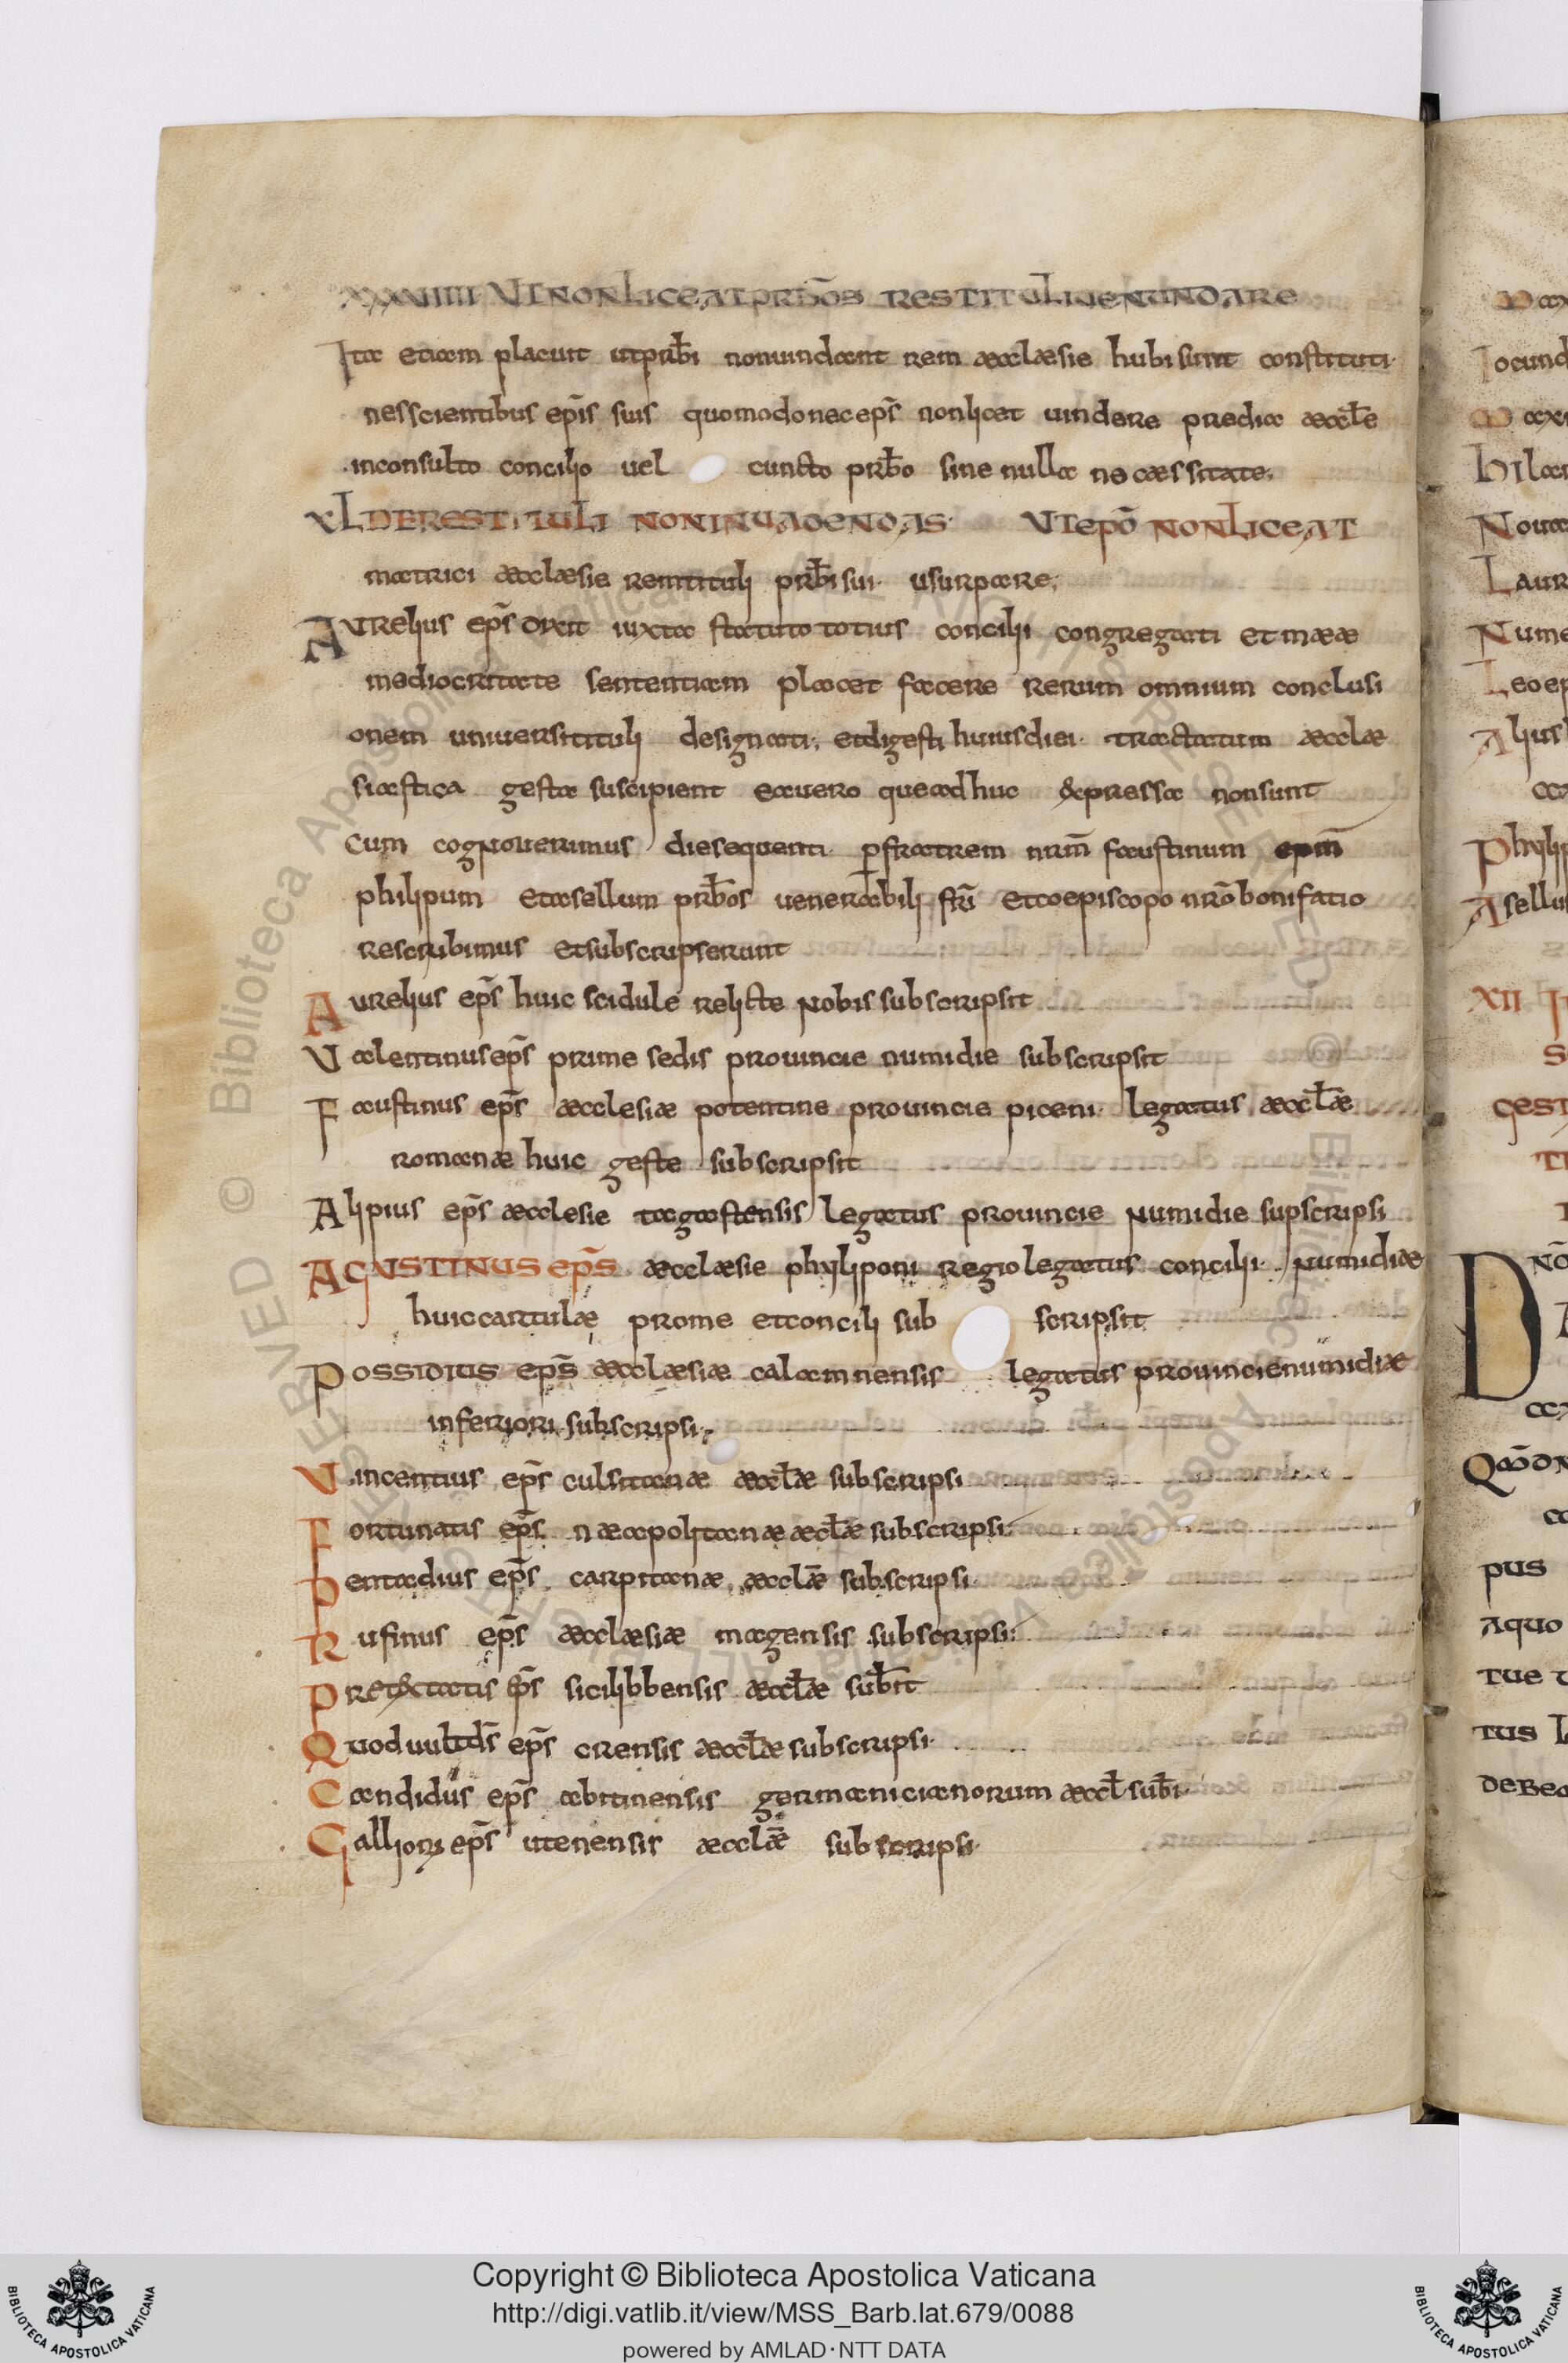 XXXVIIII UT NON LICEAT PRB̄OS RES TITULI UENUNDARE
Ita etiam placuit ut prb̄i non uindant rem æcclæsie hubi sunt constituti·
nesscientibus ep̄is suis quomodo nec ep̄s non licet uindere predia æccl̄e
inconsulto concilio uel cuncto prb̄o sine nulla necæssitate;
XL DE RES TITULI NON INUADENDAS· UT EPŌ NON LICEAT
matrici æcclæsie rem tituli prb̄i sui· usurpare;
AURelius ep̄s dixit iuxta statuto totius concilii congregati et mææ
mediocritate sententiam placet facere rerum omnium conclusi
onem uniuersi tituli designati; et digesti huius diei· tractatum æcclæ
siastica gesta suscipient ea uero que adhuc expressa non sunt
cum cognouerimus die sequenti· p̱ fratrem nrm̄ faustinum ep̄m
philipum et asellum prb̄os uenerabili fr̄i et coepiscopo nrō bonifatio
rescribimus et subscripserunt
Aurelius ep̄s huic scidule relicte nobis subscripsit
Ualentinus ep̄s prime sedis prouincie numidie subscripsit
Faustinus ep̄s æcclesiæ potentine prouincie piceni· legatus æccl̄æ
romanæ huic geste subscripsit
Alipius ep̄s æcclesie tagastensis legatus prouincie numidie supscripsi
AGUSTINUS ep̄s æcclæsie phyliponi regio legatus concilii· numidiæ
huic cartulæ prome et concili sub scripsit
Possidius ep̄s æcclæsiæ calamnensis legatus prouincie numidiæ
inferiori subscripsi·
Uincentius ep̄s culsitanæ æccl̄æ subscripsi
Fortunatis ep̄s næapolitanæ æcl̄æ subscripsi·
Pentadius ep̄s carpitanæ æcclǣ subscripsi
Rufinus ep̄s æcclæsiæ magensis subscripsi·
Pretextatis ep̄s sicilibbensis æccl̄æ subr̄it
Quoduultds̄ ep̄s crensis æccl̄æ subscripsi·
Candidus ep̄s abitinensis germanicianorum æccl̄ subr̄i·
Gallioni ep̄s utenensis æcclǣ subscripsi·
Copyright © Biblioteca Apostolica Vaticana
http://digi.vatlib.it/view/MSS_Barb.lat.679/0088
powered by AMLAD·NTT DATA
BIBLIOTECA APOSTOLICA VATICANA
BIBLIOTECA APOSTOLICA VATICANA